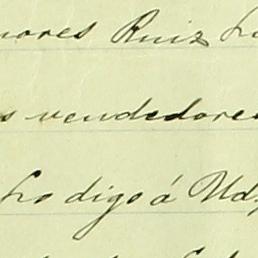 nores Ruiz
s vendedores
lo digo á Uds